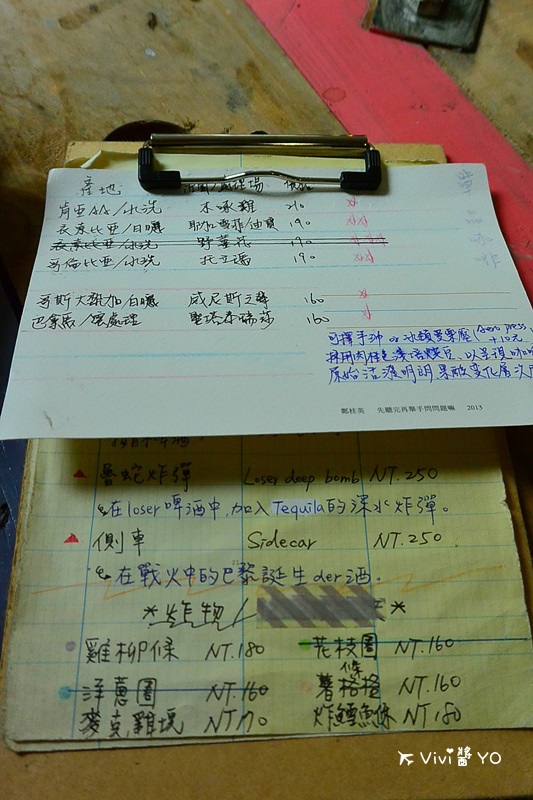 產地 莊園/處理場 價位
肯亞AA/水洗 木啄雞 210
衣索比亞/日曬 190
衣索比亞/水洗 野薑花 190
哥倫比亞/水洗 托立瑪 190
單品咖啡
哥斯大黎加/日曬 威尼斯之 160
巴拿馬/處理 聖塔泰瑞莎 160
可擇手沖 or 冰鎮愛樂壓(Aero press,
+10元
採用肉桂色淺焙熟豆、以呈現咖啡
原始活潑明朗果酸變化層次
鄭桂英 先聽完再舉手問問題嘛 2013
魯蛇炸彈 Loser deep bomb NT.250
在loser啤酒中,加入Tequila的深水炸彈。
側車 Sidecar NT.250
在戰火中的巴黎誕生der酒.
*炸物/ *
雞柳條 NT.180 花枝圈 NT.160
洋蔥圈 NT.160 薯格格 NT.160
條
麥克雞塊 NT170 炸鱈魚條 NT.180
Vivi醬YO